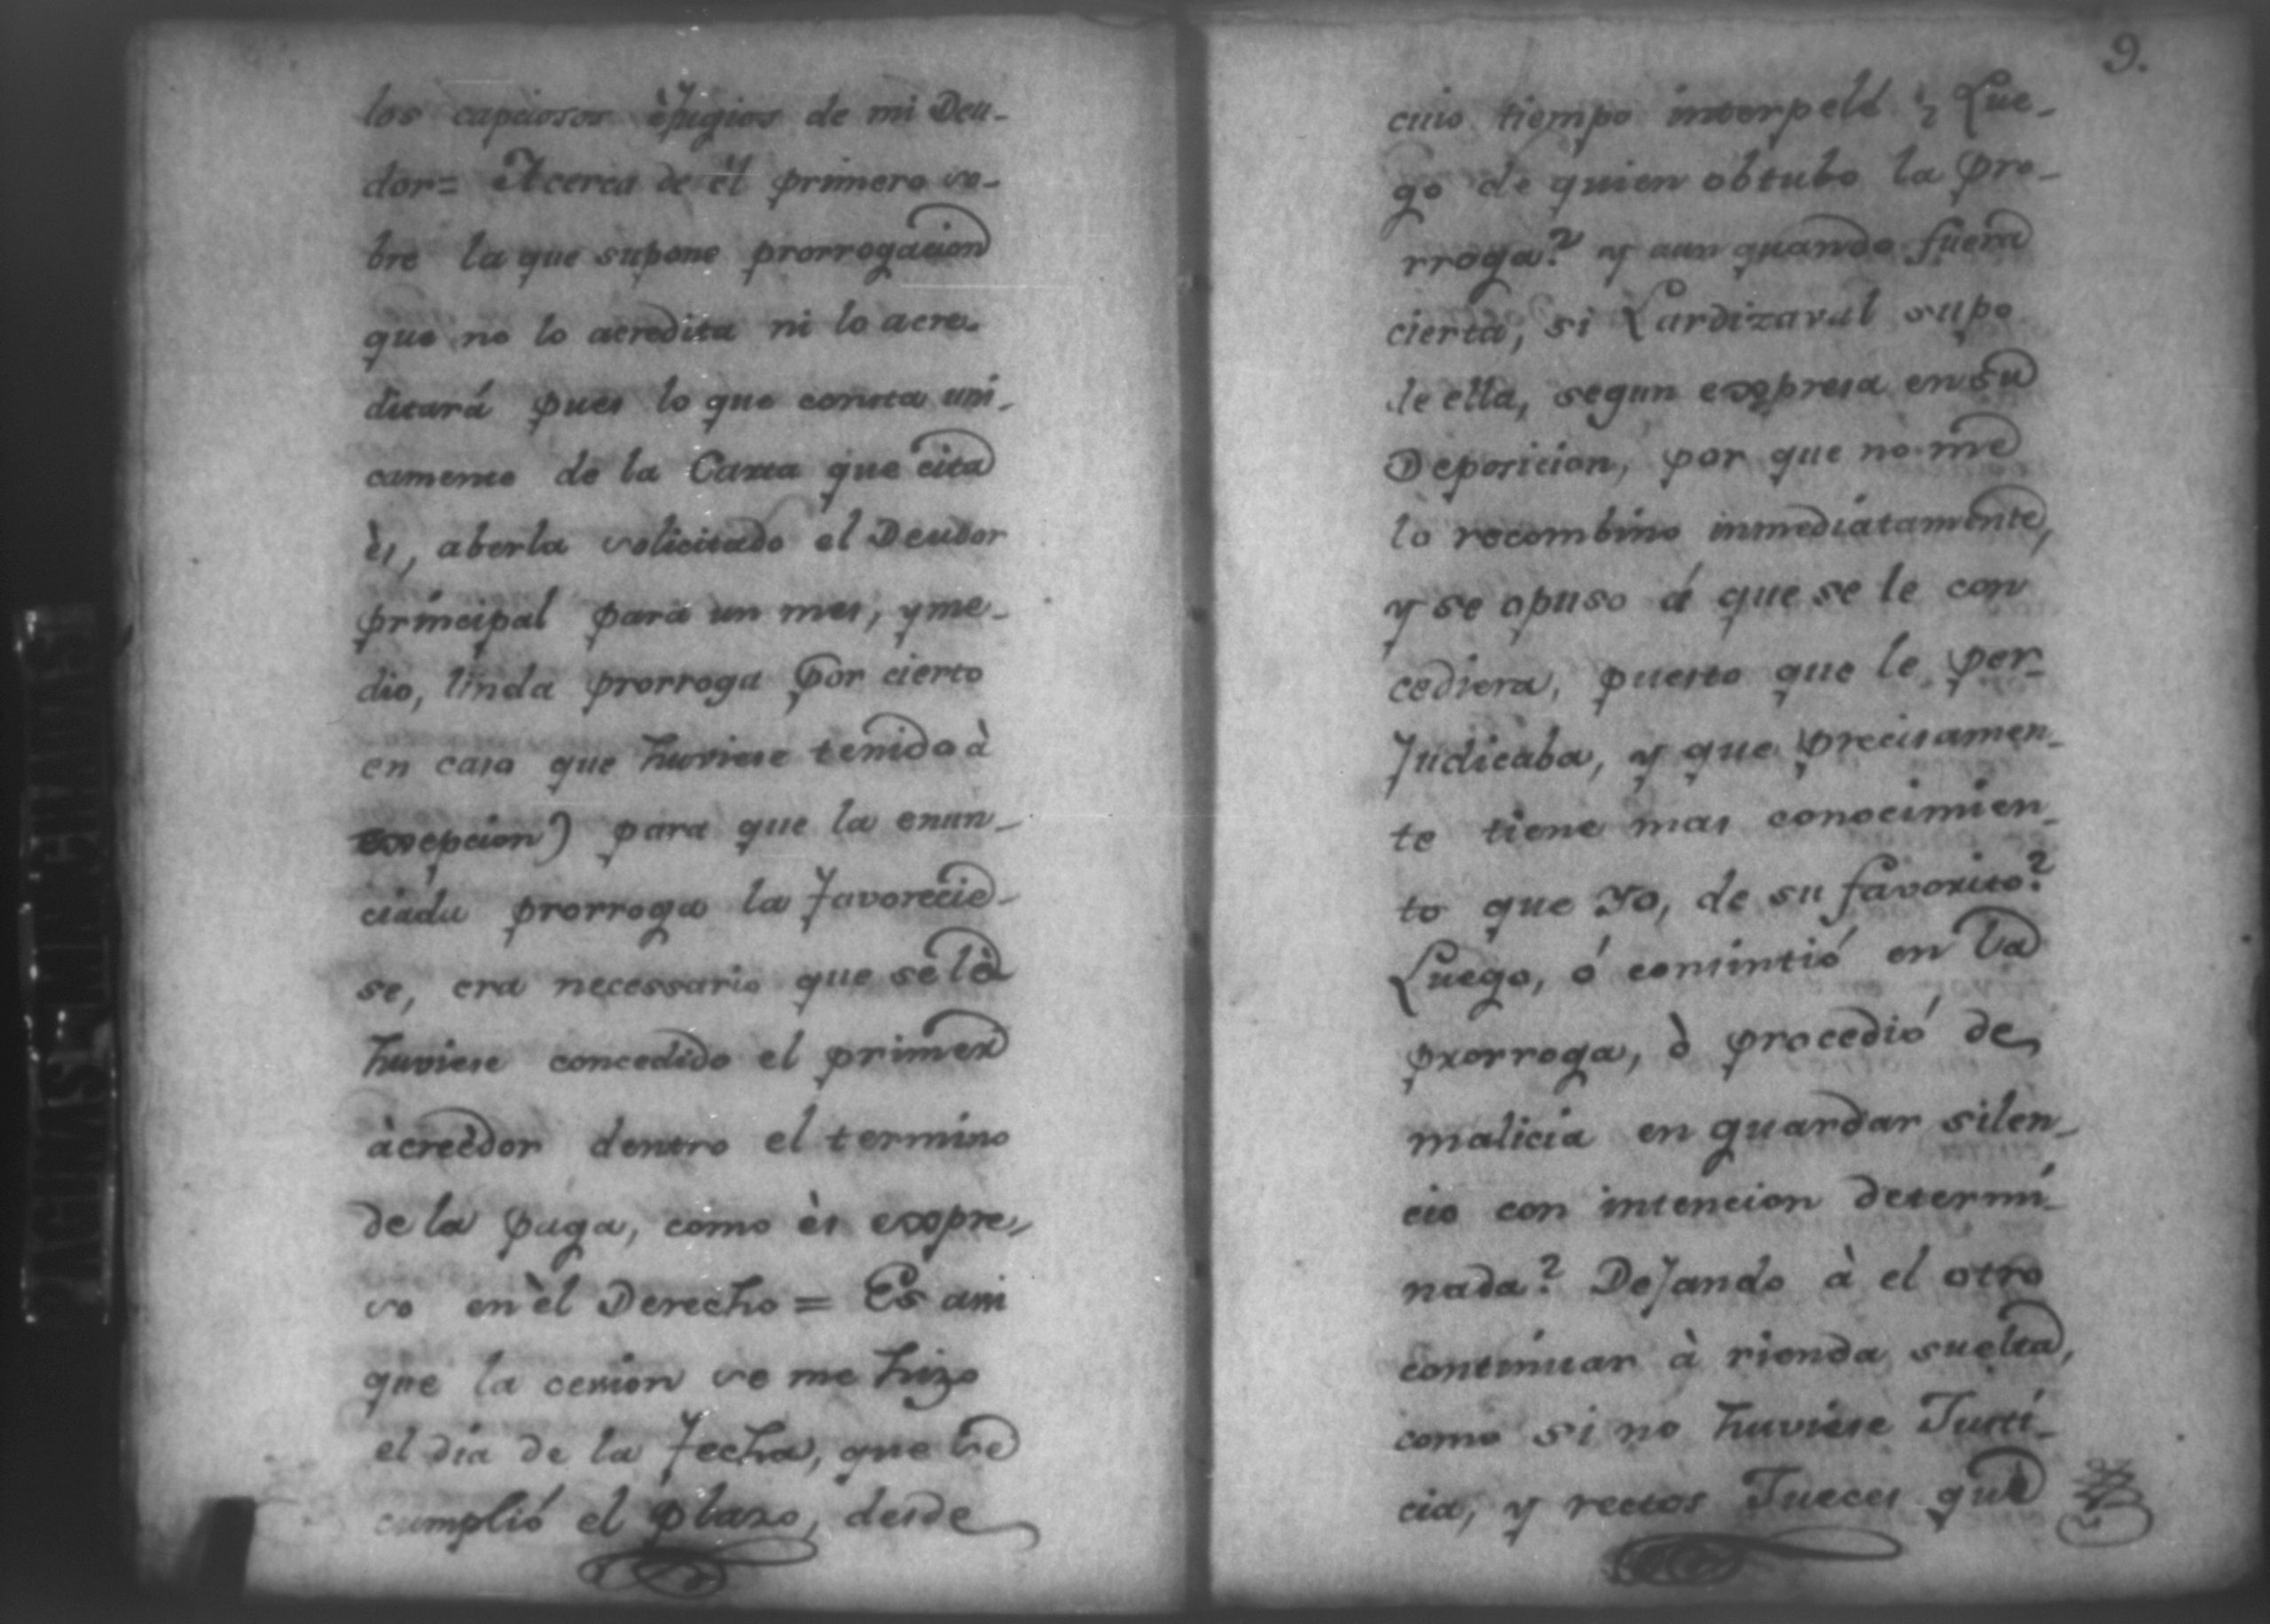 los capciosos èfugios de mi Deu-
dor= Acerca de èl primero so-
bre la que supone prorrogacion
que no lo acredita ni lo acre-
ditará pues lo que consta uni-
camente de la Carta que cita
ès, aberla solicitado el Deudor
principal para un mes, y me-
dio, linda prorroga por cierto
en caso que huviese tenido à
excepcion) para que la enun-
ciada prorroga la favorecie-
se, era necessario que se là
huviese concedido el primer
àcreèdor dentro el termino
de la paga, como ès expre-
so en èl Derecho = Es asi
que la cesion se me hizo
el dia de la fecha, que se
cumplió el plazo, desde
9.
cuio tiempo interpelé ¿ Lue-
go de quien obtubo la pro-
rroga? y aun quando fuera
cierta, si Lardizaval supo
de ella, segun expresa en su
Deposicion, por que no me
lo recombino inmediatamente,
y se opuso á que se le con
cediera, puesto que le per-
Judicaba, y que precisamen-
te tiene mas conocimien-
to que Yo, de su favorito?
Luego, ó consintió en la
prorroga, ò procedió de
malicia en guardar silen-
cio con intencion determi-
nada? DeJando à el otro
continuar à rienda suelta,
como si no huviese Justi-
cia, y rectos Jueces que